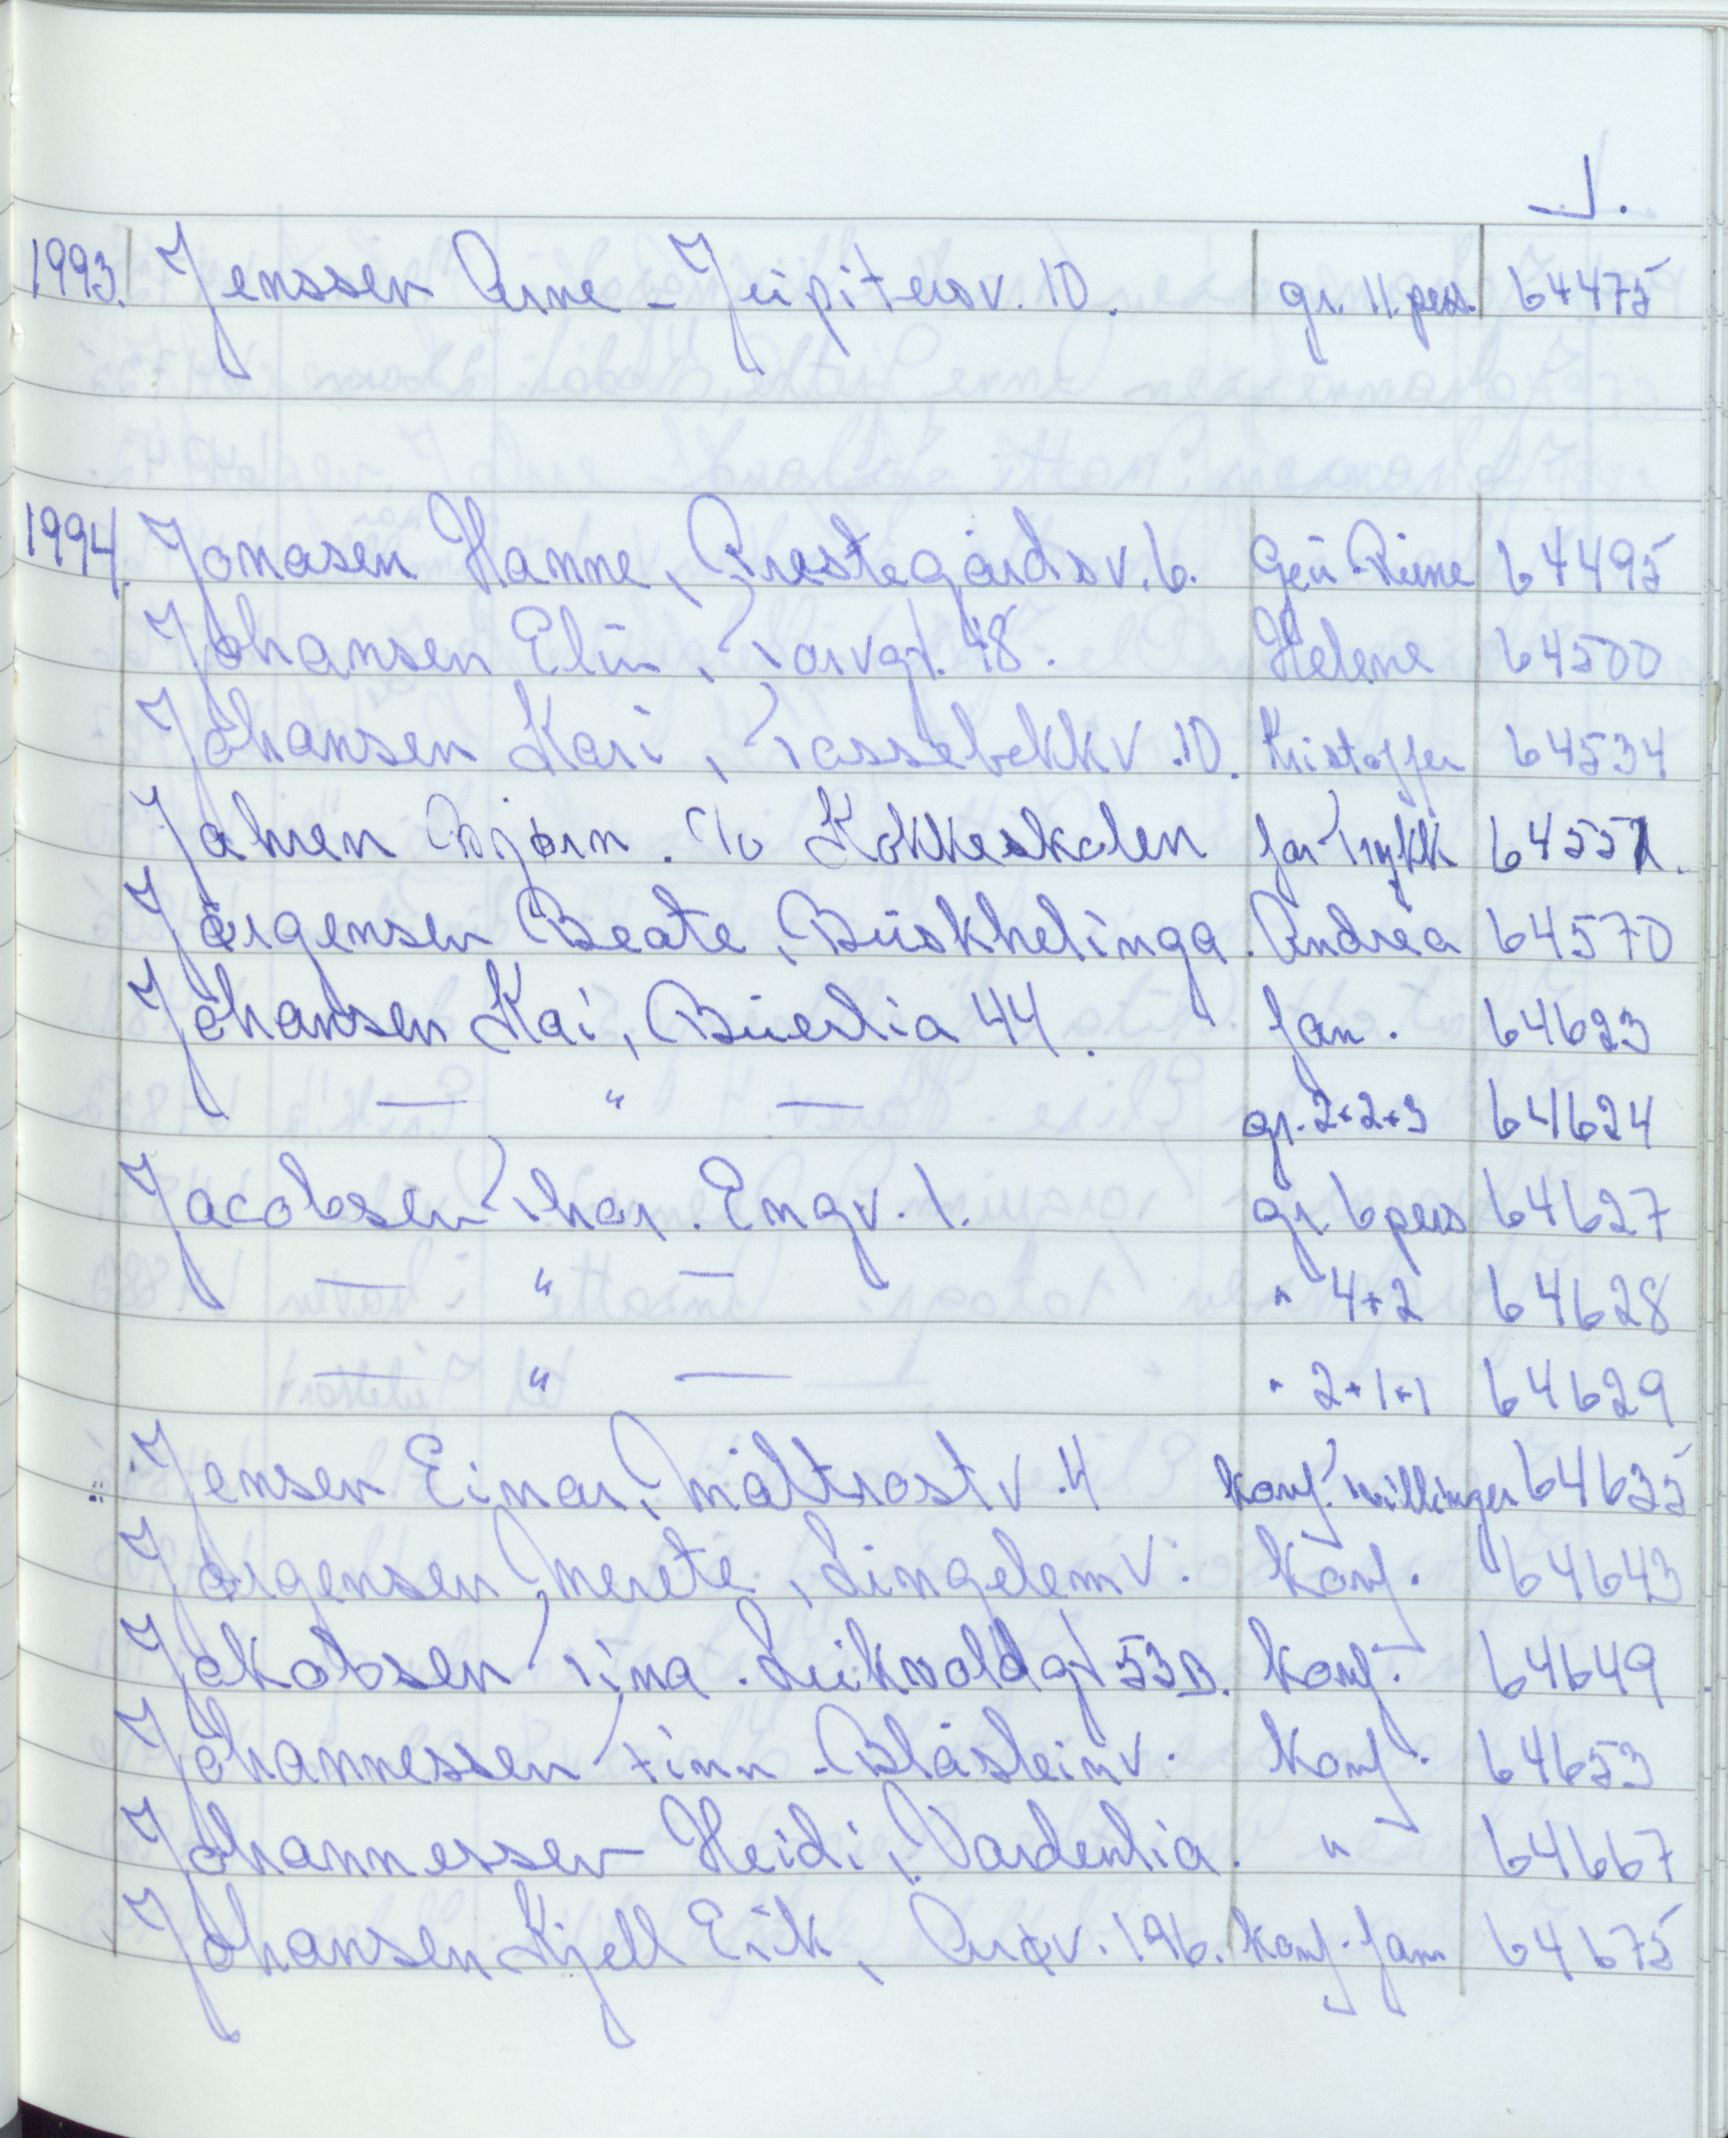 J.
1993. Jenssen Arne - Jupitersv. 10. gr. 11. pers. 64475
1994. Jonasen Hanne, Prestegårdsv. 6. Geir Rune 64495
Johansen Elin, Torvgt. 48. Helene 64500
Johansen Kari, Tassebekkv. 10. Kristoffer 64534
Jahren Bjørn. c/o Kokkeskolen fartrykk 64551.
Jørgensen Beate, Buskhelinga. Andrea 64570
Johansen Kai, Buerlia 44. fam. 64623
— " — gr. 2+2+3 64624
Jacobsen Thor. Engv. 1. gr. 6 pers 64627
— " — " 4+2 64628
— " — " 2+1+1 64629
Jensen Einar, Måltrostv. 4 konf. tvillinger 64635
Jørgensen Merete, Lingelemv. konf. 64643
Jakobsen Tina. gt 53B. konf. 64649
Johannessen Finn - Blåsteinv. konf. 64653
Johannessen Heidi, Vardenlia. " 64667
Johansen Kjell Erik, Arøv. 196. konf. fam 64675